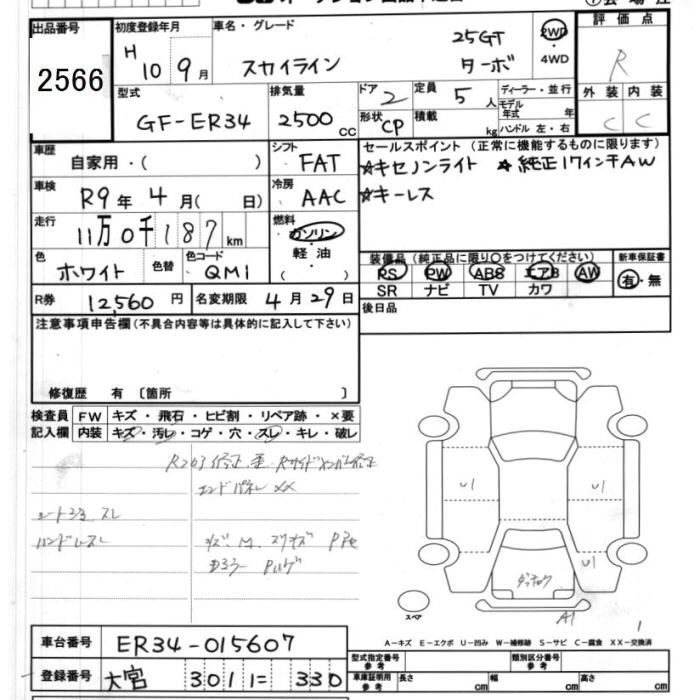 出品番号
2566
初度登録年月
H 10 9月
車名・グレード
スカイライン
25GT
ターボ
2WD
・
4WD
評価点
R
外装 内装
C C
型式
GF-ER34
排気量
2500 cc
ドア 2
形状 CP
定員 5 人
積載 kg
ディーラー・並行
モデル年式 年
ハンドル 左・右
車歴
自家用・( )
シフト
FAT
車検
R9年 4月( 日)
冷房
AAC
走行
11万0千187 km
燃料
ガソリン
・
軽油
( )
色
ホワイト
色替
色コード
QM1
R券 12,560円
名変期限 4月29日
セールスポイント (正常に機能するものに限ります)
☆キセノンライト ☆純正17インチAW
☆キーレス
装備品(純正品に限り○をつけてください)
PS PW ABS エアB AW
SR ナビ TV カワ
新車保証書
有・無
後日品
注意事項申告欄(不具合内容等は具体的に記入して下さい)
修復歴 有 〔箇所 〕
検査員記入欄
FW キズ・飛石・ヒビ割・リペア跡・×要
内装 キズ・汚レ・コゲ・穴・スレ・キレ・破レ
エンドパネル XX
シート スレ
ハンドルスレ
U1
U1
U1
A1
1
スペア
A-キズ E-エクボ U-凹み W-補修跡 S-サビ C-腐食 XX-交換済
車台番号 ER34-015607
登録番号 大宮 301 に 330
型式指定番号 参考
類別区分番号 参考
車庫証明用 参考
長さ cm
幅 cm
高さ cm